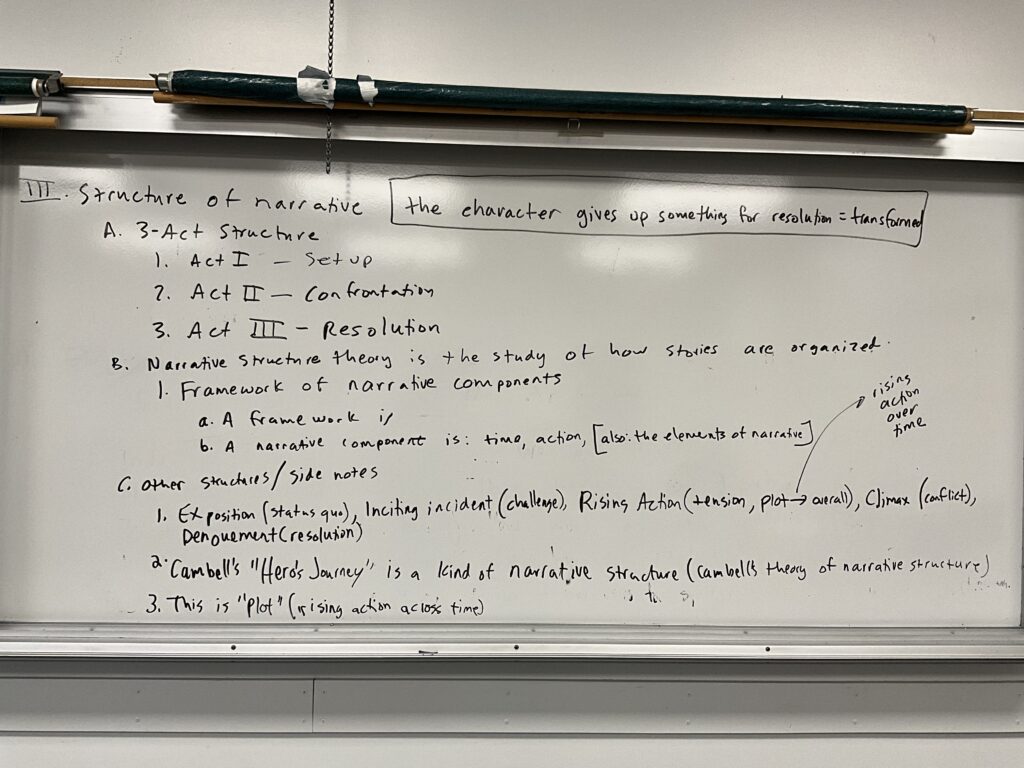 III. Structure of narrative
the character gives up something for resolution = transformed
A. 3-Act Structure
1. Act I — Set up
2. Act II — Confrontation
3. Act III — Resolution
B. Narrative structure theory is the study of how stories are organized.
1. Framework of narrative components
a. A framework is
b. A narrative component is: time, action, [also: the elements of narrative]
rising
action
over
time
C. Other structures/side notes
1. Exposition (status quo), Inciting incident (challenge), Rising Action (tension, plot → overall), Climax (conflict),
Denouement (resolution)
2. Cambell's "Hero's Journey" is a kind of narrative structure (Cambell's theory of narrative structure)
3. This is "plot" (rising action across time)